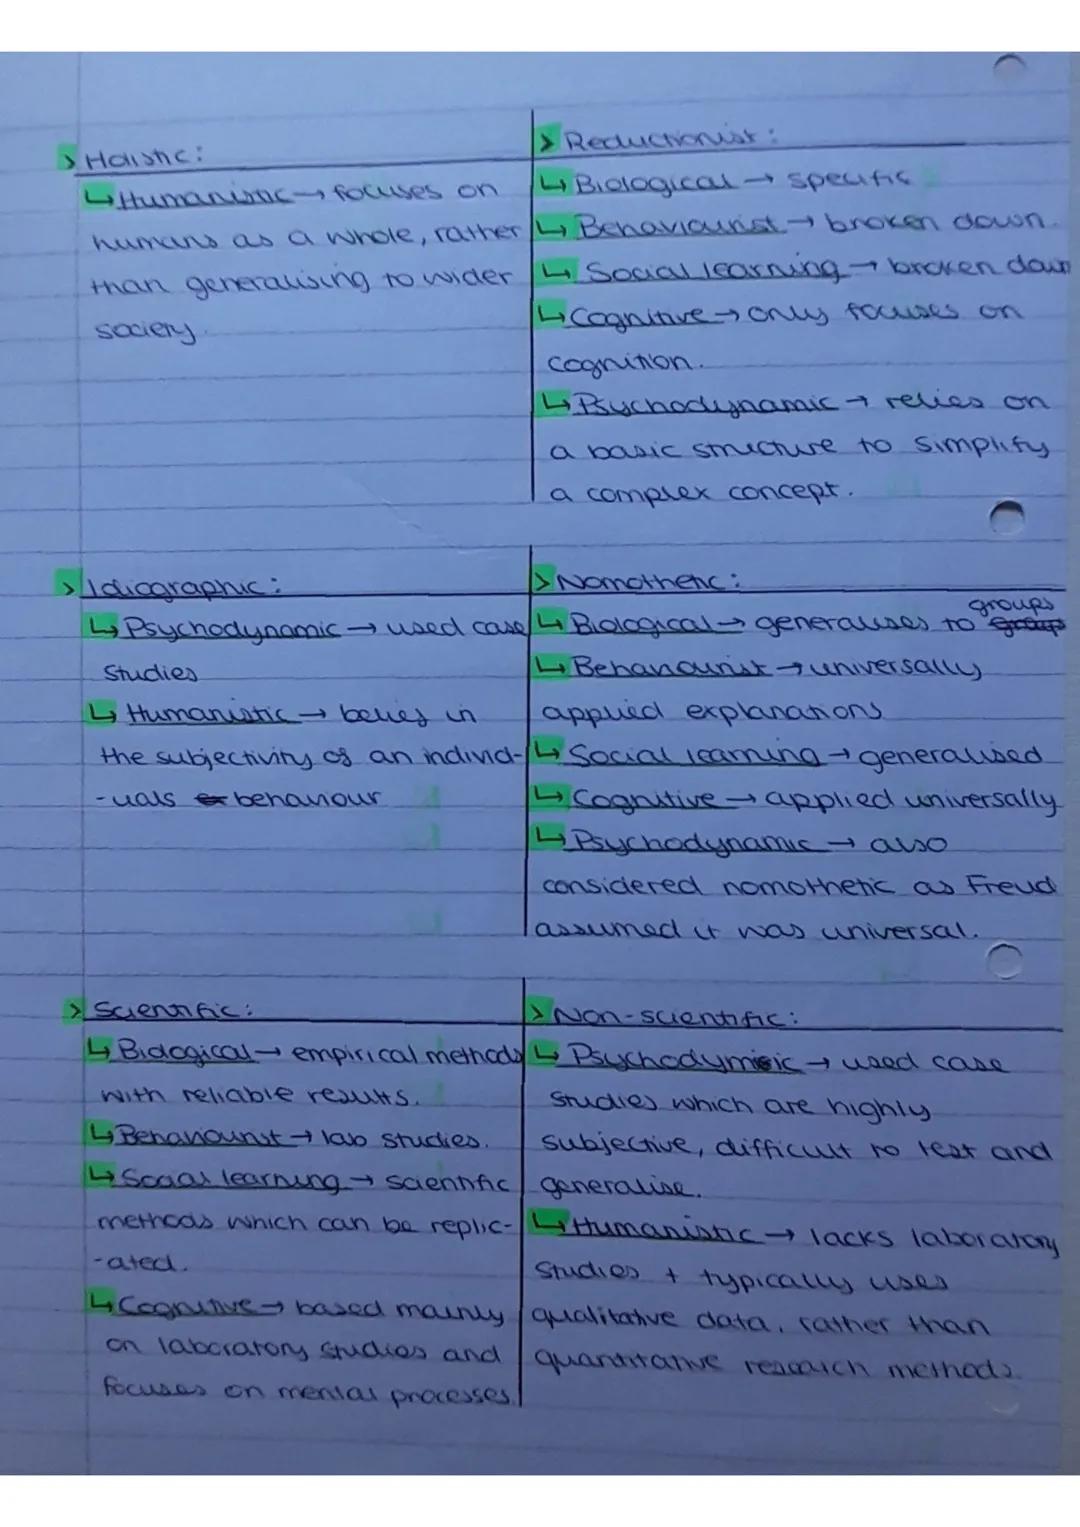 > Holistic:
↳ Humanistic → focuses on
humans as a whole, rather
than generalising to wider
society.
> Reductionist:
↳ Biological → specific
↳ Behaviourist → broken down.
↳ Social learning → broken down
↳ Cognitive → only focuses on
cognition.
↳ Psychodynamic → relies on
a basic structure to simplify
a complex concept.
> Idiographic:
↳ Psychodynamic → used case
studies
↳ Humanistic → belies in
the subjectivity of an individ-
-uals behaviour
> Nomothetic:
groups
↳ Biological → generalises to group
↳ Behaviourist → universally
applied explanations
↳ Social learning → generalised
↳ Cognitive → applied universally
↳ Psychodynamic → also
considered nomothetic as Freud
assumed it was universal.
> Scientific:
↳ Biological → empirical methods
with reliable results.
↳ Behaviourist → lab studies.
↳ Social learning → scientific
methods which can be replic-
-ated.
↳ Cognitive → based mainly
on laboratory studies and
focuses on mental processes.
> Non-scientific:
↳ Psychodymic → used case
studies which are highly
subjective, difficult to test and
generalise.
↳ Humanistic → lacks laboratory
studies + typically uses
qualitative data, rather than
quantitative research methods.